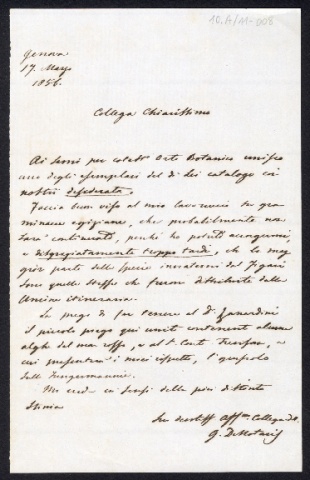 10.A/11-008
Genova
17. Marzo
1856.
Collega Chiarissimo
Ai semi per cotesto Orto Botanico unisco
uno degli esemplari del di Lei catalogo coi
nostri desiderata.
Faccia buon viso al mio lavoruccio su gra-
minacee egiziane, che probabilmente non
sarà continuato, perchè ho potuto accorgermi,
e disgraziatamente troppo tardi, che la mag-
gior parte delle specie
sono quelle stesse che furono distribuite dalla
Unione itineraria.
La prego di far tenere al Dr. Zanardini
il piccolo piego qui unito contenente alcune
alghe del mar rosso, e al Sr. Conte Trevisan, a
cui presenterà i miei rispetti, l'opuscolo
delle Jungermannie.
Mi creda coi sensi della più distinta
stima
Suo devotiss. Affmo. Collega
G. DeNotaris